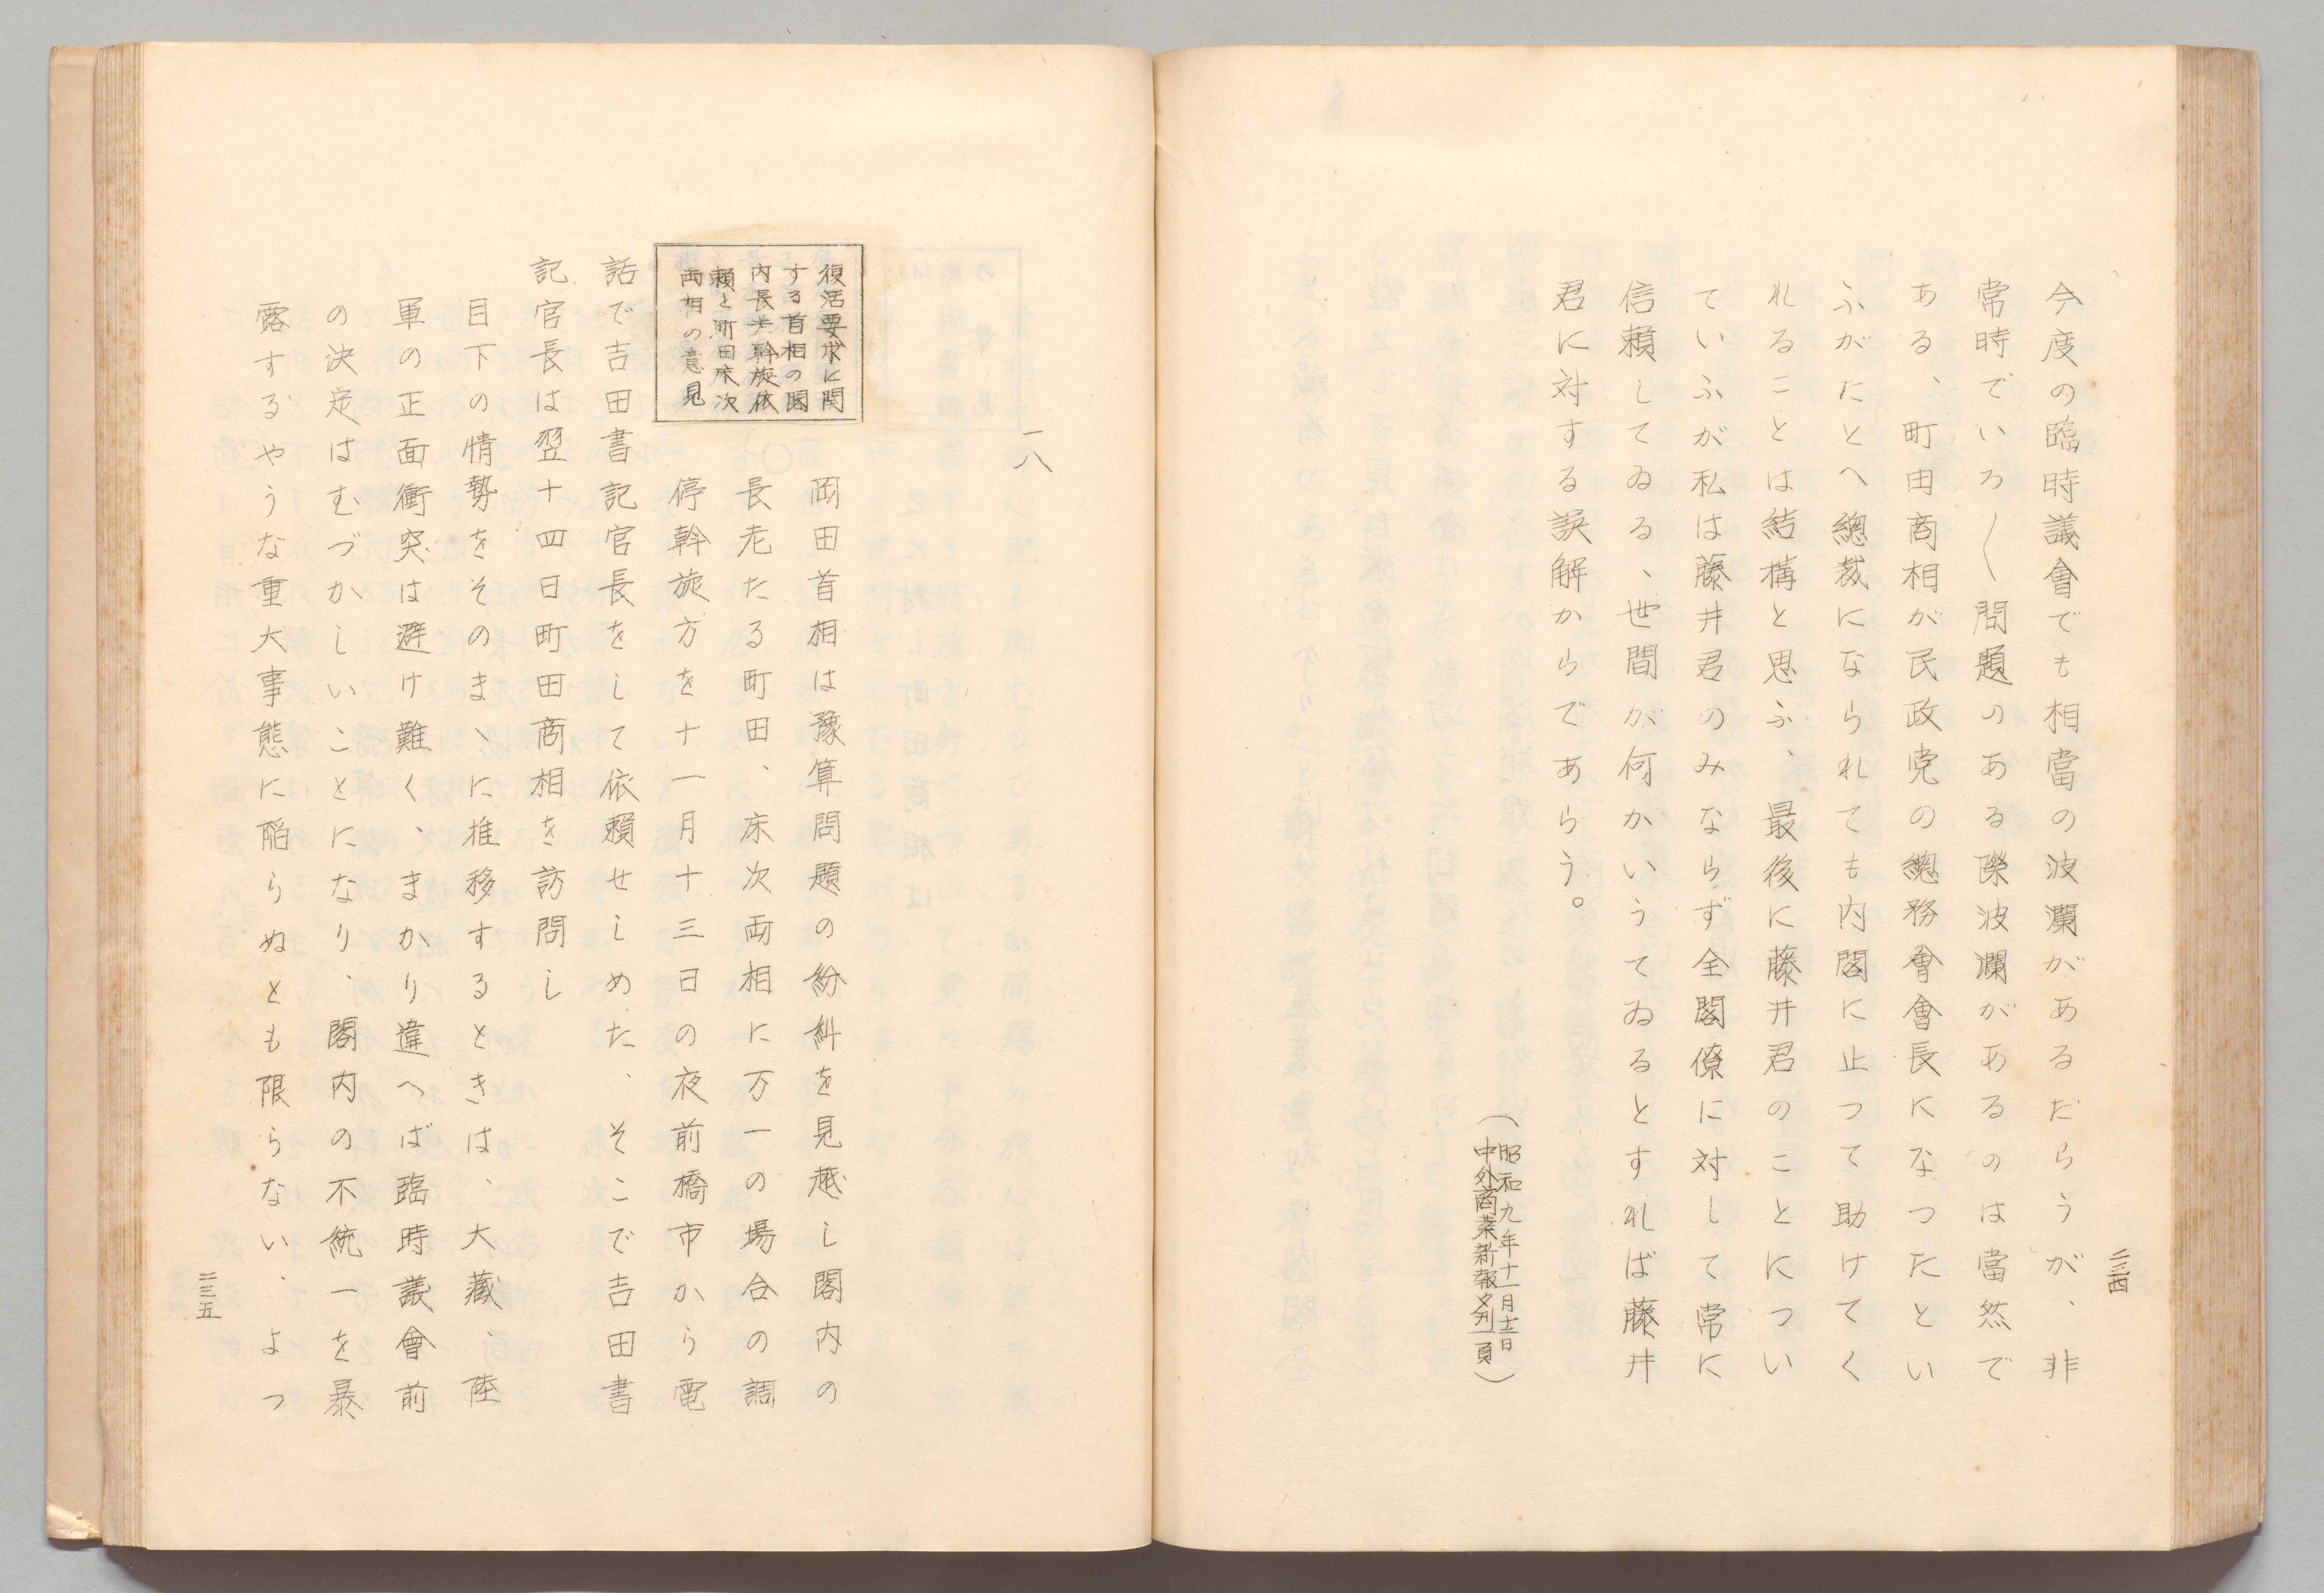 今度の臨時議會でも相當の波瀾があるだらうが、非
常時でいろ〳〵問題のある際波瀾があるのは當然で
ある、町田商相が民政党の總務會會長になつたとい
ふがたとへ總裁になられても内閣に止つて助けてく
れることは結構と思ふ、最後に藤井君のことについ
ていふが私は藤井君のみならず全閣僚に対して常に
信頼してゐる、世間が何かいうてゐるとすれば藤井
君に対する誤解からであらう。
（昭和九年十一月十三日
中外商業新報夕刊一頁）
二三四
一八
復活要求に関
する首相の閣
内長老斡旋依
頼と町田床次
両相の意見
岡田首相は豫算問題の紛糾を見越し閣内の
長老たる町田、床次両相に万一の場合の調
停斡旋方を十一月十三日の夜前橋市から電
話で吉田書記官長をして依頼せしめた、そこで吉田書
記官長は翌十四日町田商相を訪問し
目下の情勢をそのまゝに推移するときは、大藏、陸
軍の正面衝突は避け難く、まかり違へば臨時議會前
の決定はむづかしいことになり、閣内の不統一を暴
露するやうな重大事態に陥らぬとも限らない、よつ
二三五